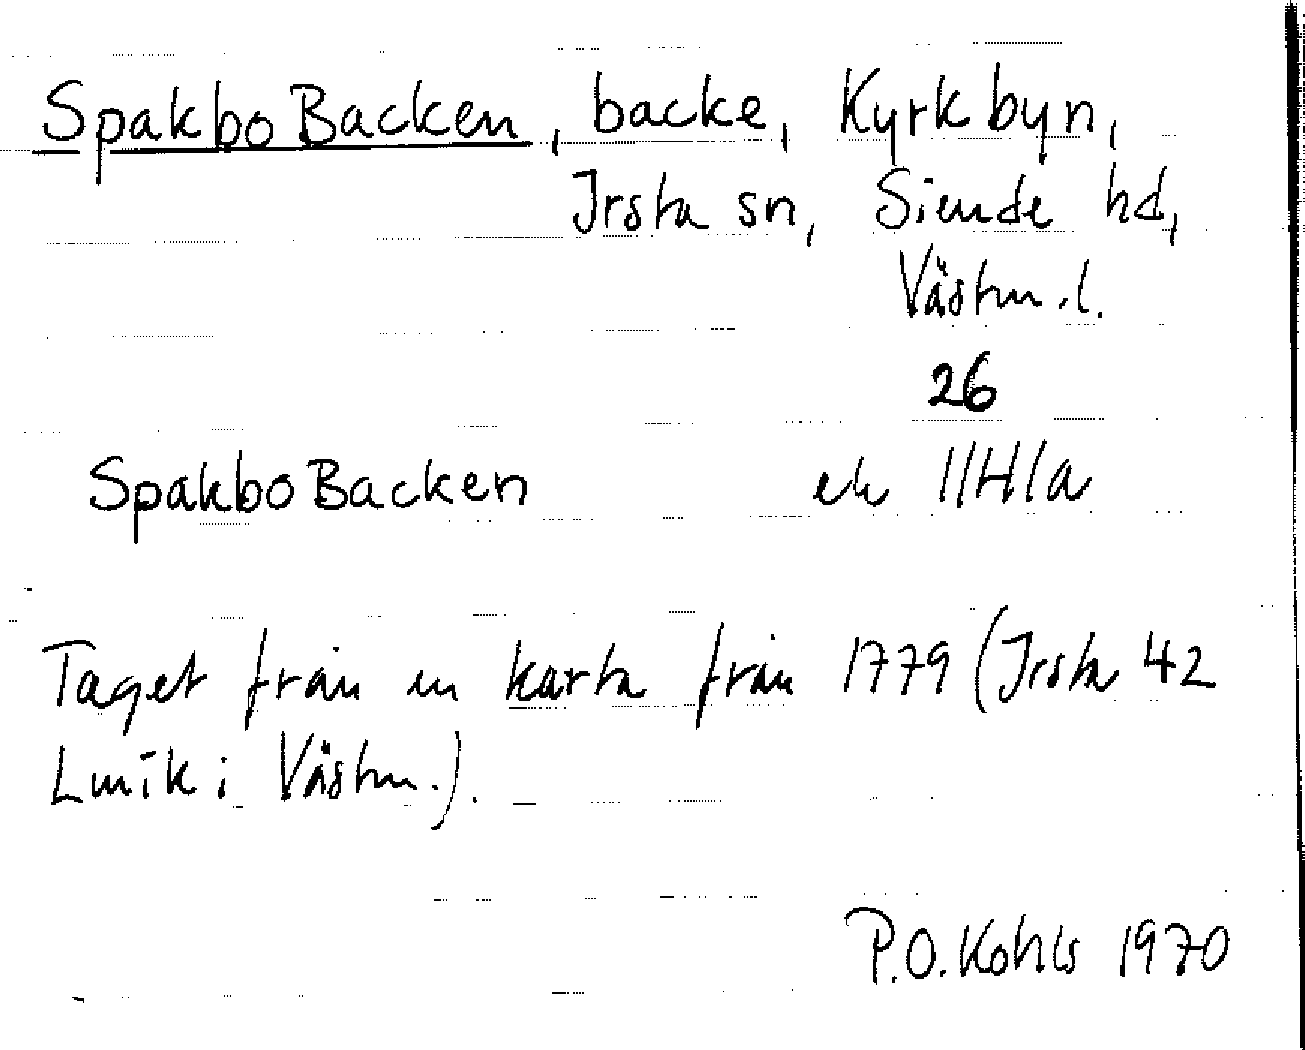 SpakboBacken, backe, Kyrkbyn,
Irsta sn, Siende hd,
Västm.l.
26
SpakboBacken ek 11H1a
Taget från en karta från 1779 (Irsta 42
Lmfk i Västm.).
P.O. Kohls 1970